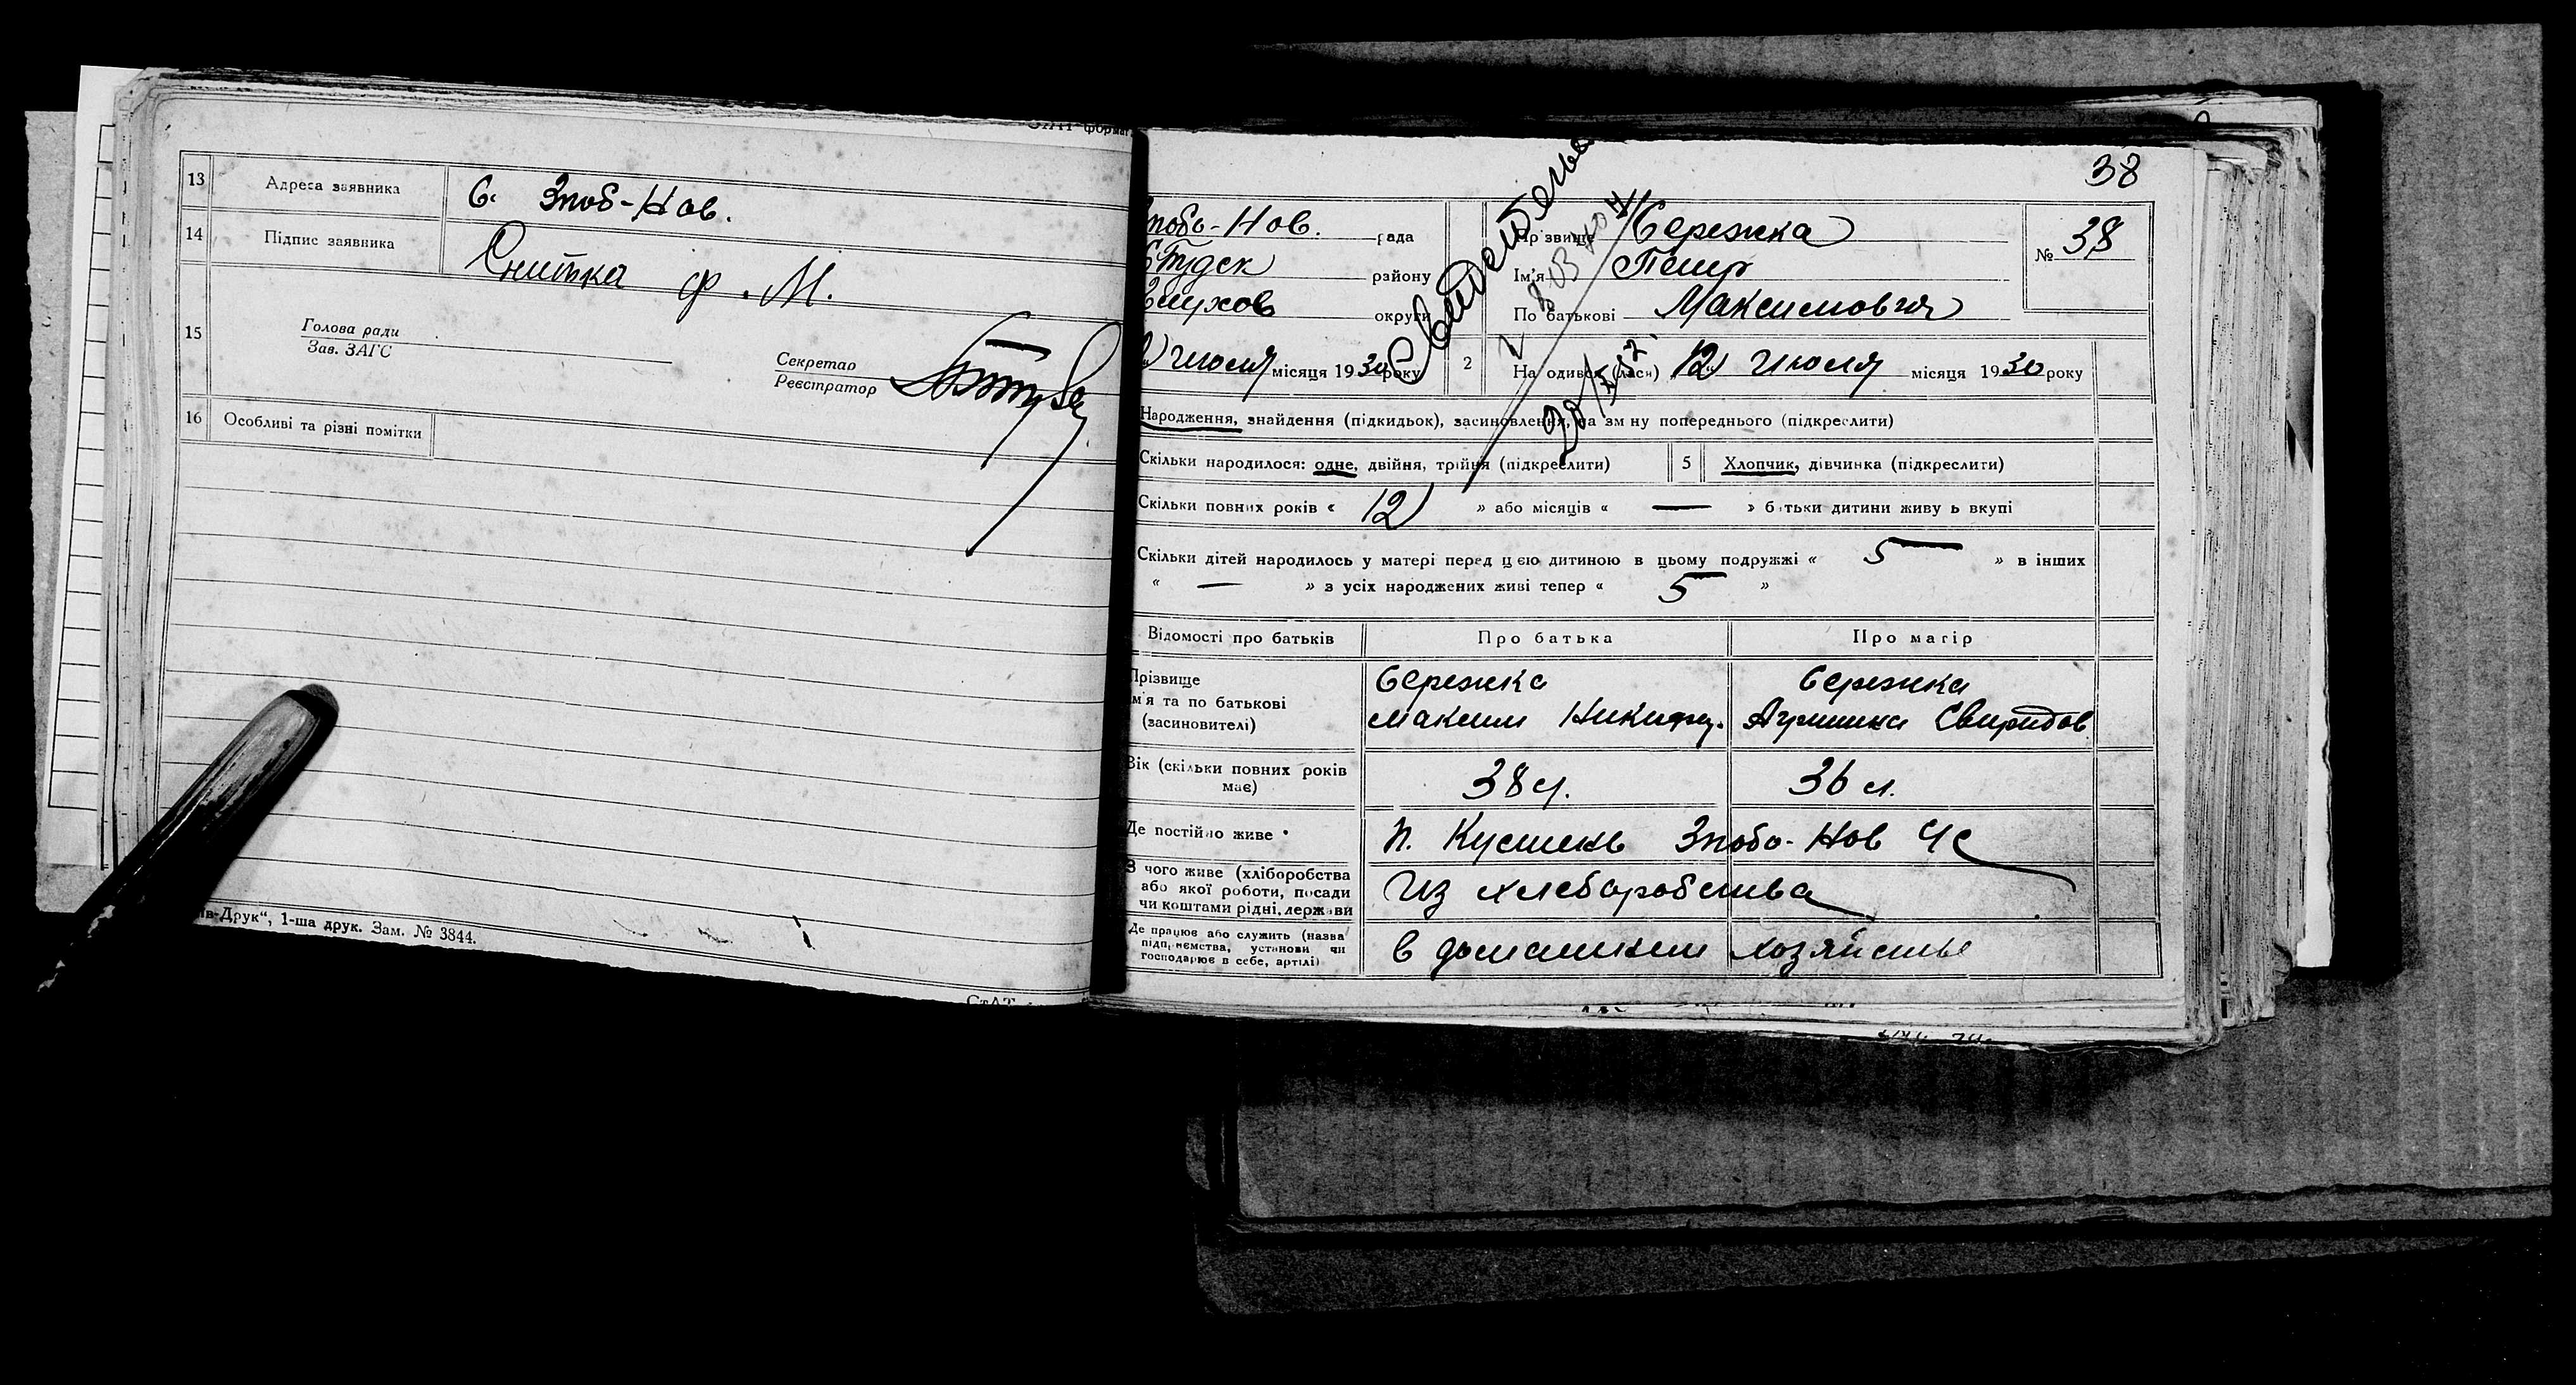 13 Адреса заявника С. Зноб-Нов.
14 Підпис заявника Снитка Ф. М.
15 Голова ради
Зав. ЗАГС
Секретар
Реєстратор
16 Особливі та різні помітки
в-Друк“, 1-ша друк. Зам. № 3844.
38
нобо-Нов. рада
Студек району
Глухов округи
Июля місяця 1930 року
2
Прізвище Сережка
Ім'я Петр
По батькові Максимович
№ 38
На одився (лась) 12 Июля місяця 1930 року
Народження, знайдення (підкидьок), засиновлення, на зміну попереднього (підкреслити)
Скільки народилося: одне, двійня, трійня (підкреслити) 5 Хлопчик, дівчинка (підкреслити)
Скільки повних років « 12 » або місяців « — » батьки дитини живуть вкупі
Скільки дітей народилось у матері перед цією дитиною в цьому подружжі « 5 » в інших
« — » з усіх народжених живі тепер « 5 »
Відомості про батьків Про батька Про матір
Прізвище Сережка Сережка
м'я та по батькові Максим Никифр. Свиридов
(засиновителі)
Вік (скільки повних років має) 38 л. 36 л.
Де постійно живе п. Знобо-Нов
З чого живе (хліборобства
або якої роботи, посади
чи коштами рідні, держави
Из хлеборобства
Де працює або служить (назва
підприємства, установи чи
господарює в себе, артілі)
в домашнем хозяйстве